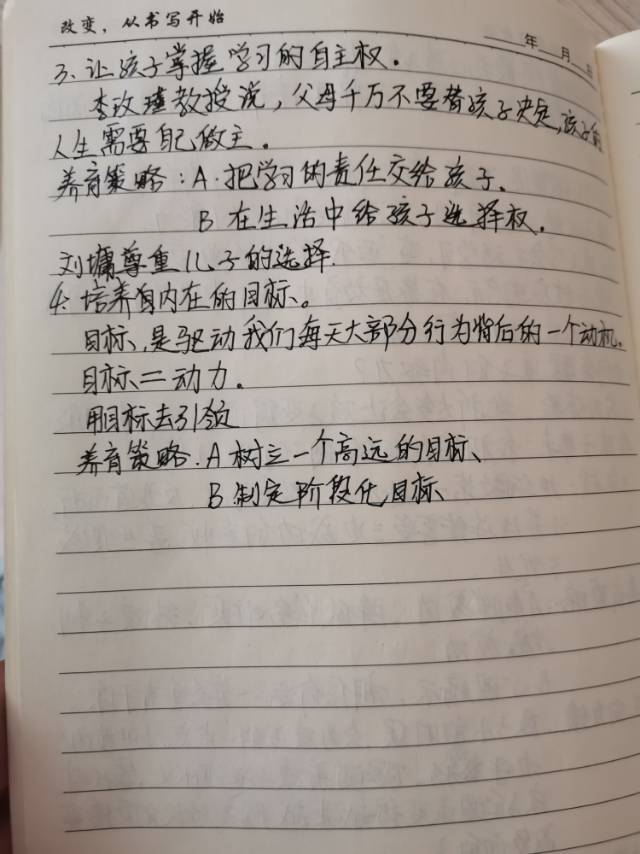 改变，从书写开始
年 月 日
3、让孩子掌握学习的自主权。
李玫瑾教授说，父母千万不要替孩子决定，孩子的
人生需要自己做主。
养育策略：A·把学习的责任交给孩子。
B 在生活中给孩子选择权。
刘墉尊重儿子的选择.
4. 培养自内在的目标。
目标，是驱动我们每天大部分行为背后的一个动机。
目标二动力。
用目标去引领
养育策略.A树立一个高远的目标、
B.制定阶段化目标